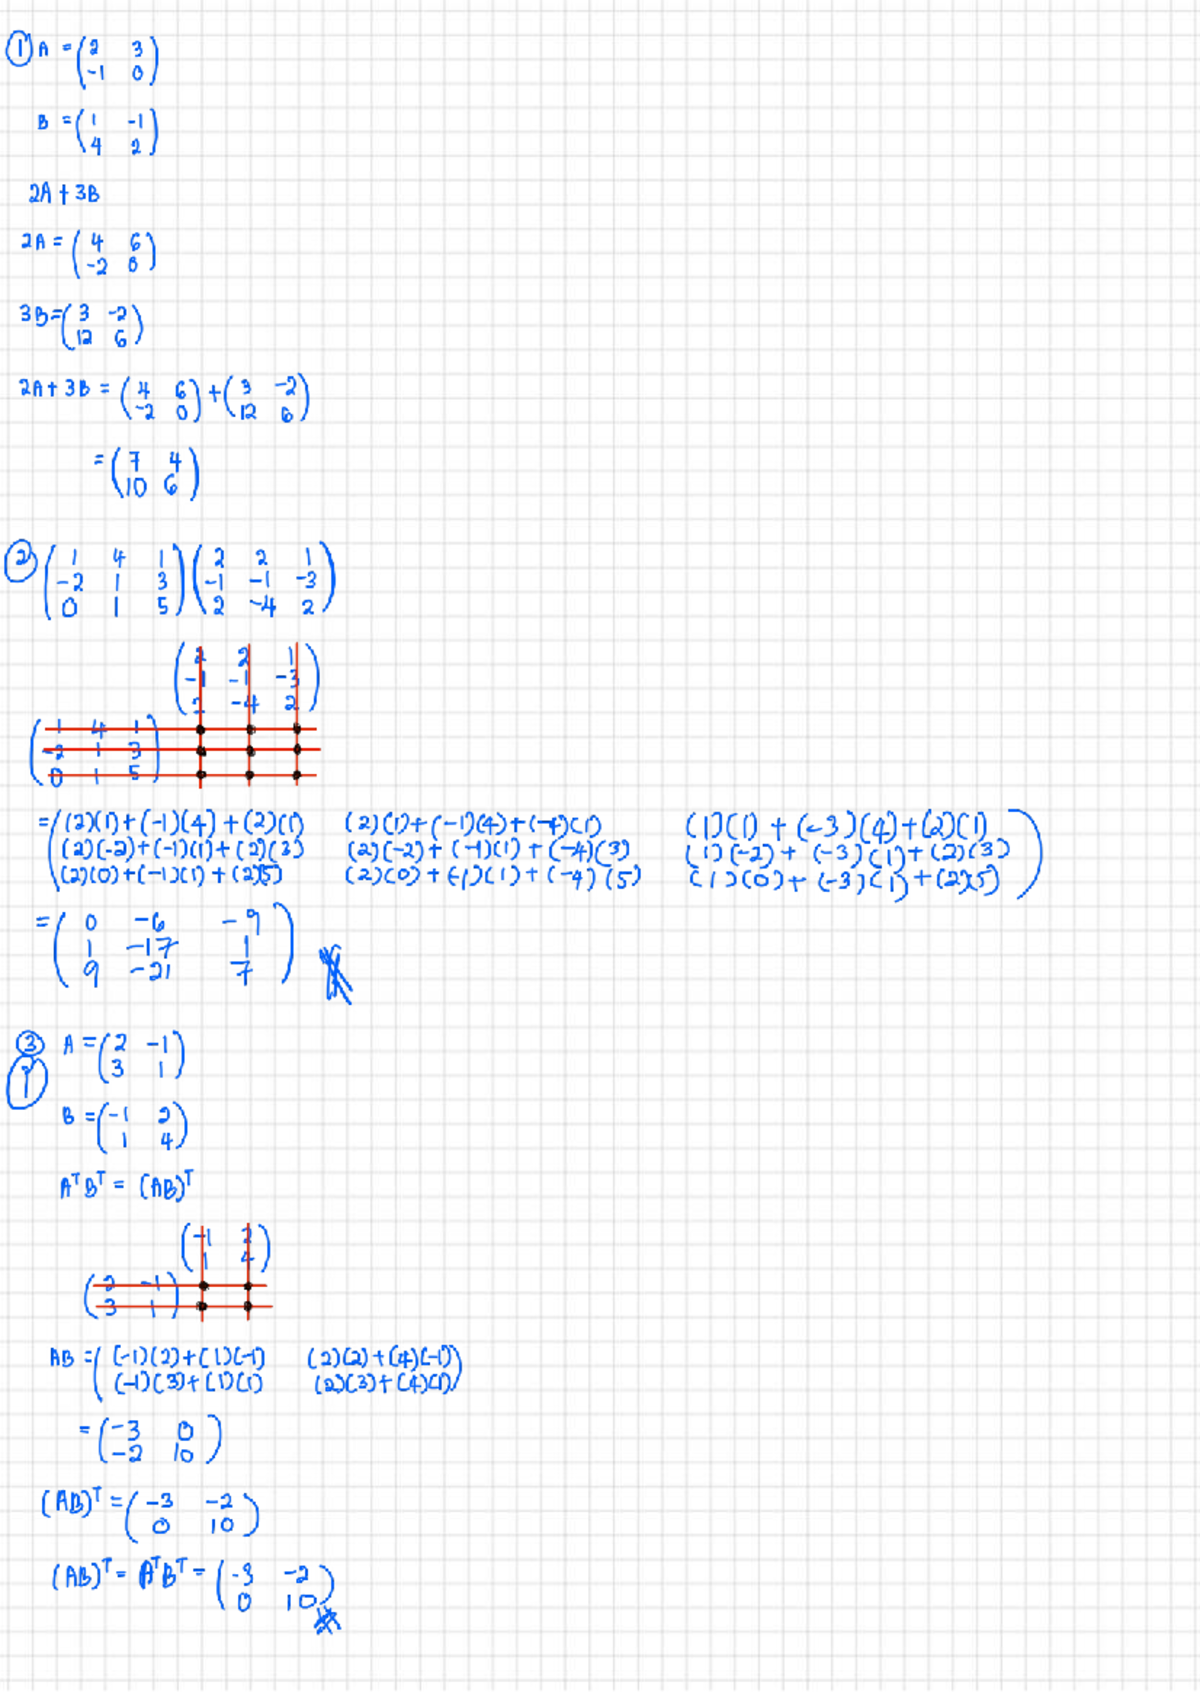 ① A = (2 3
-1 0)
B = (1 -1
4 2)
2A + 3B
2A = (4 6
-2 0)
3B = (3 -2
12 6)
2A + 3B = (4 6
-2 0) + (3 -2
12 6)
= (7 4
10 6)
② (1 4 1
-2 1 3
0 1 5) (2 2 1
-1 -1 -3
2 -4 2)
(2 2 1
-1 -1 -3
2 -4 2)
(1 4 1
-2 1 3
0 1 5)
= ((2)(1)+(-1)(4)+(2)(1) (2)(1)+(-1)(4)+(-4)(1) (1)(1)+(-3)(4)+(2)(1)
(2)(-2)+(-1)(1)+(2)(3) (2)(-2)+(-1)(1)+(-4)(3) (1)(-2)+(-3)(1)+(2)(3)
(2)(0)+(-1)(1)+(2)(5) (2)(0)+(-1)(1)+(-4)(5) (1)(0)+(-3)(1)+(2)(5))
= (0 -6 -9
1 -17 1
9 -21 7)
③ A = (2 -1
① 3 1)
B = (-1 2
1 4)
AᵀBᵀ = (AB)ᵀ
(-1 2
1 4)
(2 -1
3 1)
AB = ((-1)(2)+(1)(-1) (2)(2)+(4)(-1)
(-1)(3)+(1)(1) (2)(3)+(4)(1))
= (-3 0
-2 10)
(AB)ᵀ = (-3 -2
0 10)
(AB)ᵀ = AᵀBᵀ = (-3 -2
0 10)